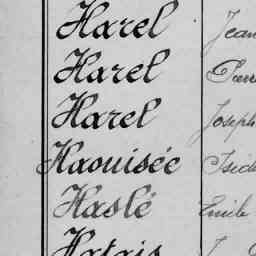 Harel Jean
Harel
Harel Joseph
Haouisée Isid
Haslé Emile
Hatais